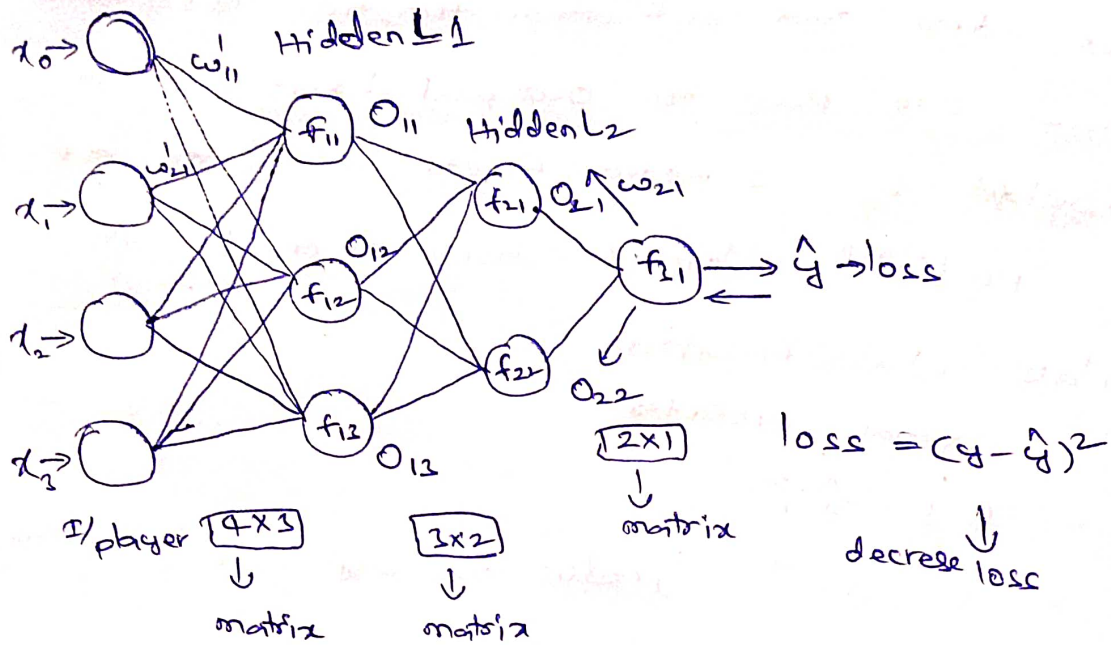 x₀→
ω¹₁₁
Hidden L1
f₁₁
O₁₁
Hidden L2
x₁→
ω¹₂₁
f₂₁
O₂₁
ω₂₁
O₁₂
f₁₂
f₃₁
ŷ → loss
x₂→
f₂₂
O₂₂
x₃→
f₁₃
O₁₃
2×1
matrix
loss = (y - ŷ)²
decrese loss
I/player
4×3
matrix
3×2
matrix